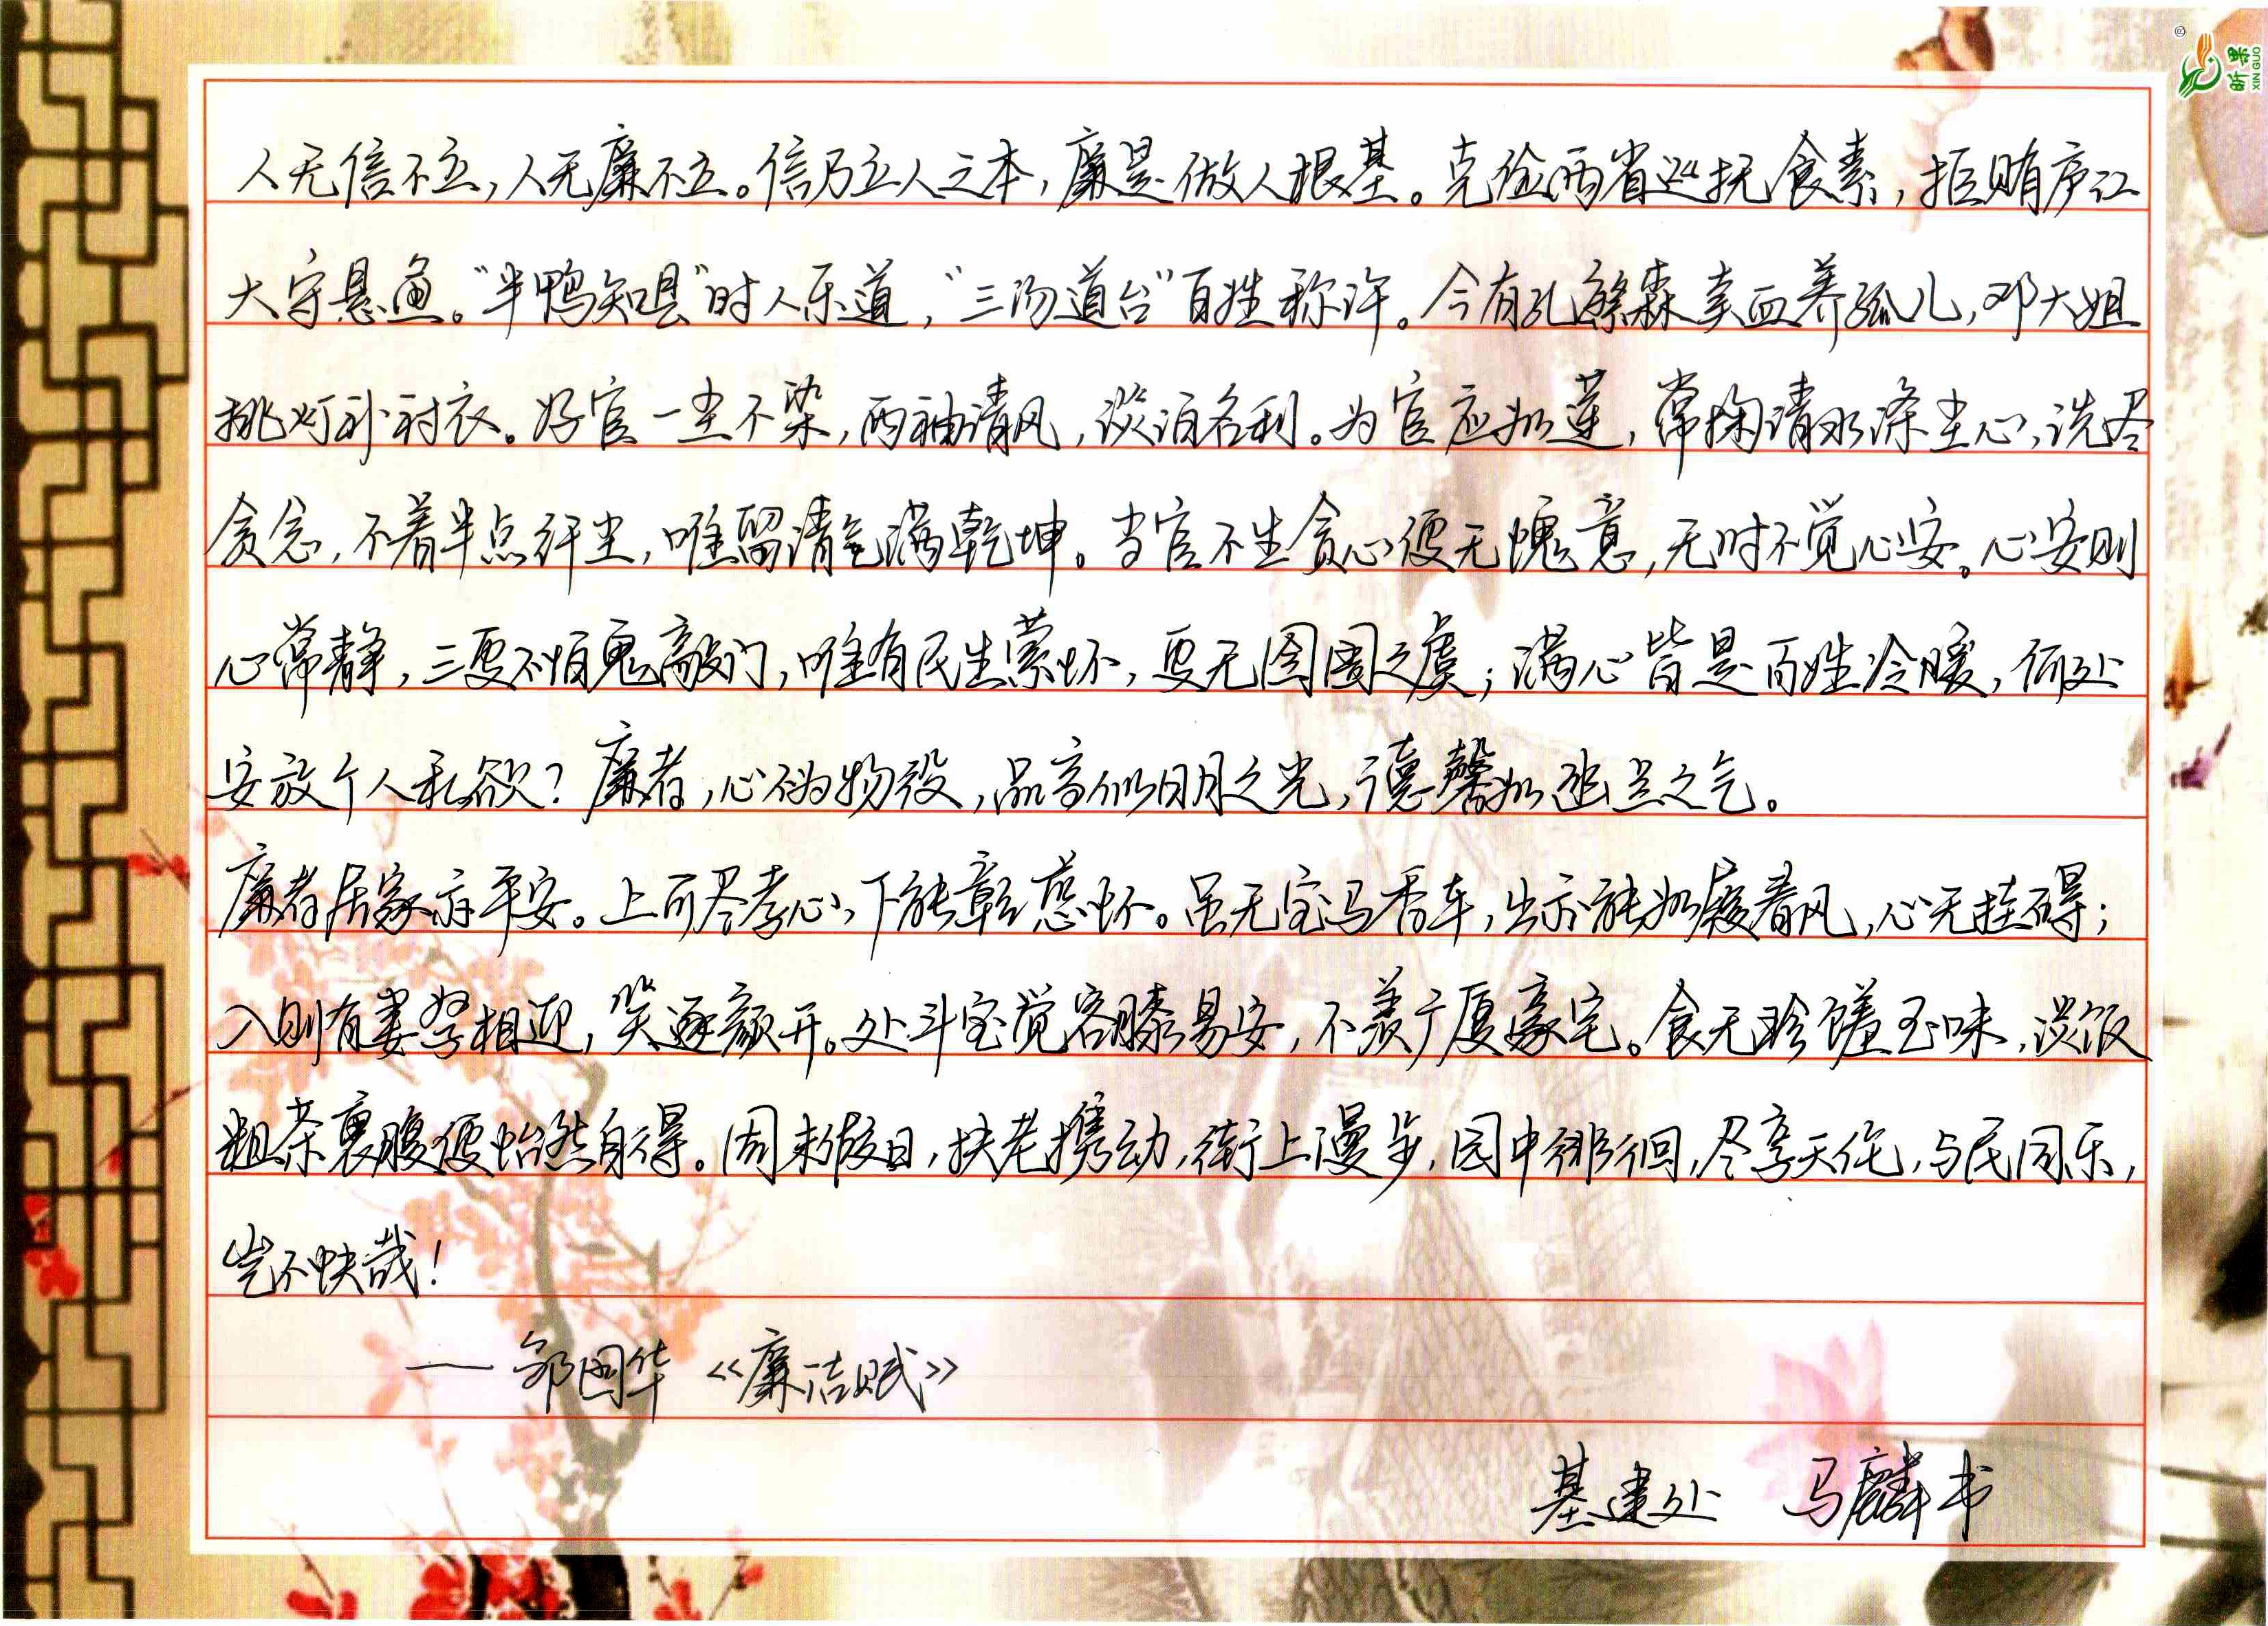 人无信不立，人无廉不立。信乃立人之本，廉是做人根基。克俭两省巡抚食素，拒贿庐江
太守悬鱼。“半鸭知县”时人乐道，“三汤道台”百姓称许。今有孔繁森卖血养孤儿，邓大姐
挑灯补衬衣。好官一尘不染，两袖清风，淡泊名利。为官应如莲，常掬清水涤尘心，洗尽
贪念，不着半点纤尘，唯留清气满乾坤。当官不生贪心便无愧意，无时不觉心安。心安则
心常静，三更不怕鬼敲门，唯有民生萦怀，更无囹圄之虞；满心皆是百姓冷暖，何处
安放个人私欲？廉者，心不为物役，品高似明月之光，德馨如幽兰之气。
廉者居家亦平安。上可尽孝心，下能彰慈怀。虽无宝马香车，出亦能如履春风，心无挂碍；
入则有妻孥相迎，笑逐颜开。处斗室觉容膝易安，不羡广厦豪宅。食无珍馐玉味，淡饭
粗茶裹腹便怡然自得。周末假日，扶老携幼，街上漫步，园中徘徊，尽享天伦，与民同乐，
岂不快哉！
——邹国华《廉洁赋》
基建处 马麟书
昕果
XIN GUO